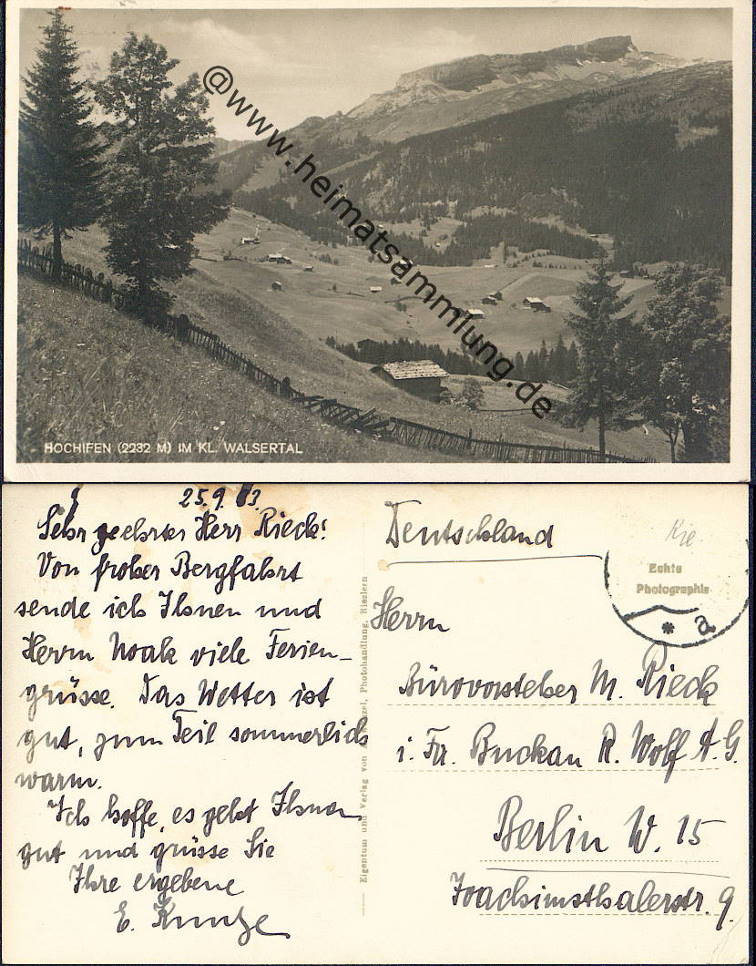 @www.heimatsammlung.de
HOCHIFEN (2232 M) IM KL. WALSERTAL
25.9.
Sehr geehrter Herr Rieck!
Von froher Bergfahrt
sende ich Ihnen und
Herrn Noak viele Ferien-
grüsse. Das Wetter ist
gut, zum Teil sommerlich
warm.
Ich hoffe, es geht Ihnen
gut und grüsse Sie
Ihre ergebene
E. Kunze
Eigentum und Verlag von Photohandlung, Riezlern
Deutschland
Echte
Photographie
* a
Herrn
Bürovorsteher M. Rieck
i. Fa. Buckau R. Wolf A G.
Berlin W. 15
Joachimsthalerstr. 9.